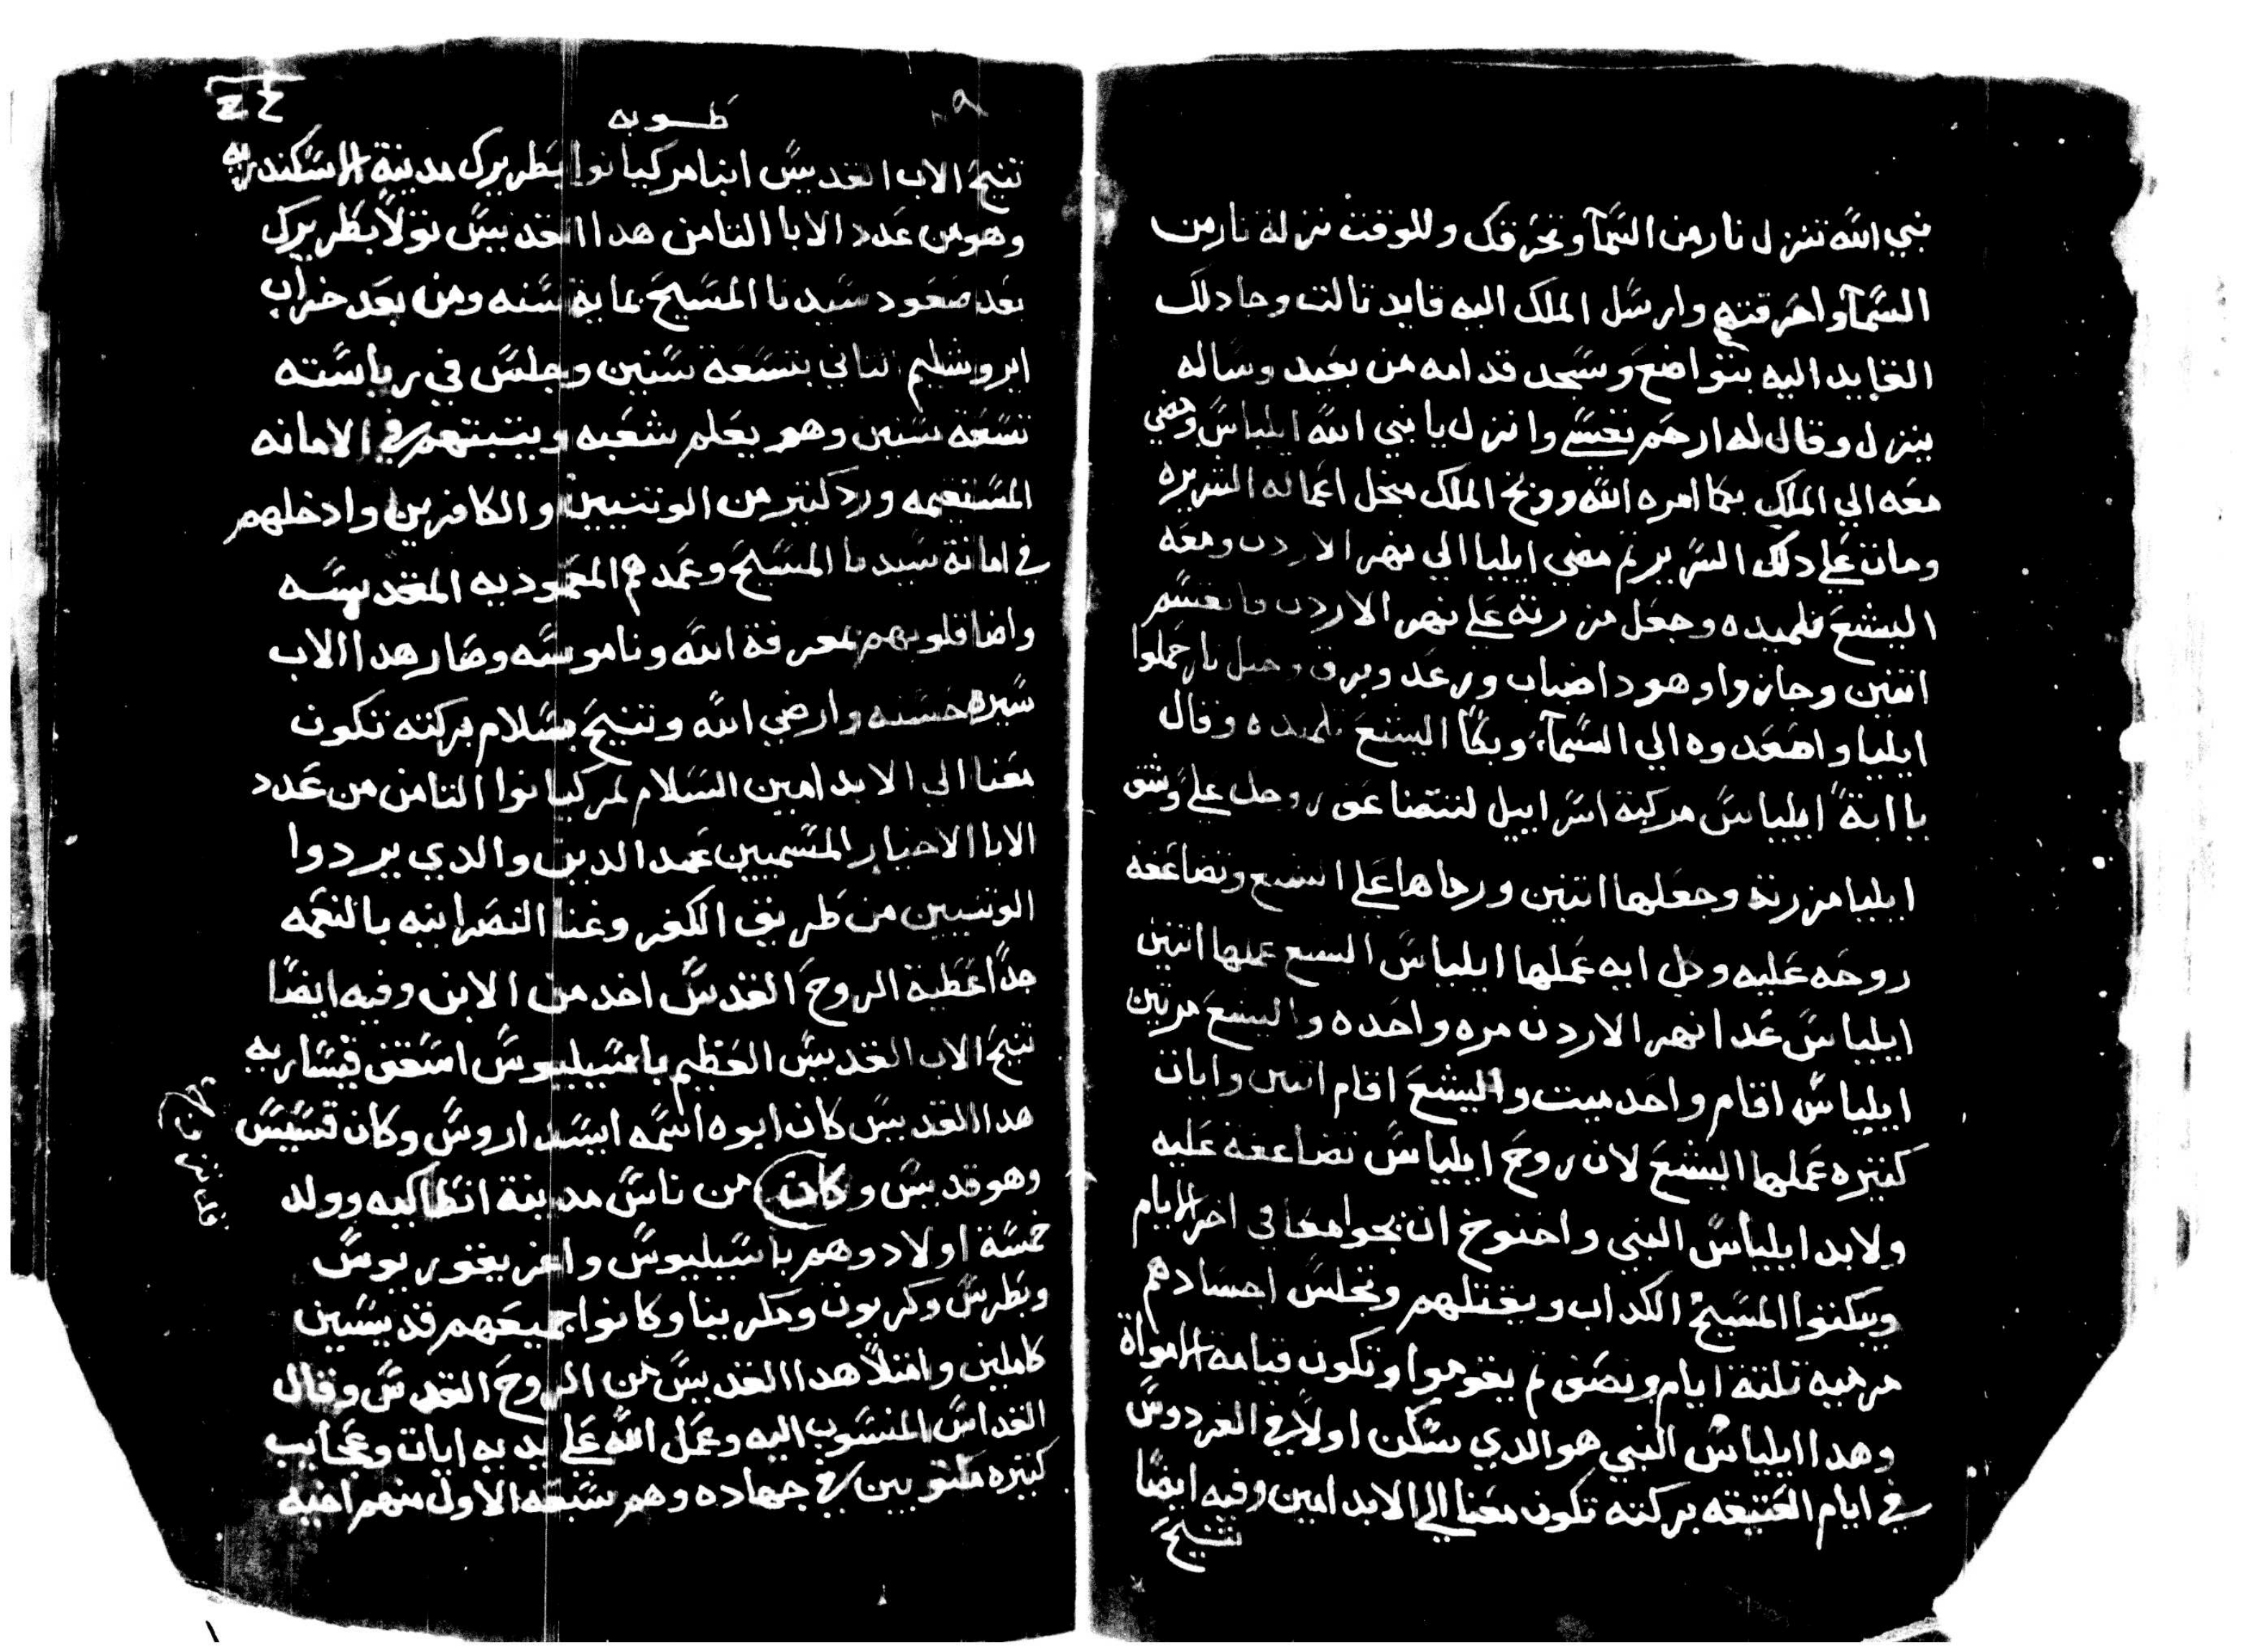 نبي الله تنزل نار من السما وتحرقك وللوقت نزلة نار من
السما واحرقتهم وارسل الملك اليه قايد تالت وجا دلك
القايد اليه بتواضع وسجد قدامه من بعيد وساله
ينزل وقال له ارحم نفسي وانزل يا نبي الله ايلياس ومضي
معه الي الملك بما امره الله ووبخ الملك مبخل اعماله الشريره
ومات علي دلك الشرير تم مضي ايليا الي نهر الاردن ومعه
اليشع تلميده وجعل مزرته علي نهر الاردن فانقسم
اتنين وجازوا وهودا ضباب ورعد وبرق وخيل نار حملوا
ايليا واصعدوه الي السما وبكا اليشع تلميده وقال
يا ابة ايلياس مركبة اسراييل لتتضاعف روحك علي وشق
ايليا مزرته وجعلها اتنين ورماها علي اليشع وتضاعفة
روحه عليه وكل ايه عملها ايلياس اليشع عملها اتنين
ايلياس عدا نهر الاردن مره واحده واليشع مرتين
ايلياس اقام واحد ميت واليشع اقام اتنين وايات
كتيره عملها اليشع لان روح ايلياس تضاعفة عليه
ولابد ايلياس النبي واخنوخ ان يجوا معا في اخر الايام
ويبكتوا المسيح الكداب ويقتلهم وتجلس اجسادهم
مرميه تلتة ايام ونصف تم يقوموا وتكون قيامة الاموات
وهدا ايلياس النبي هو الدي سكن اولا في الفردوس
في ايام العتيقه بركته تكون معنا الي الابد امين وفيه ايضا
تنيح
طوبه
تنيح الاب القديس انبا مركيانوا بطريرك مدينة الاسكندريه
وهو من عدد الابا التامن هدا القديس تولا بطريرك
بعد صعود سيدنا المسيح بماية سنه ومن بعد خراب
ايروشليم التاني بتسعة سنين وجلس في رياسته
تسعة سنين وهو يعلم شعبه ويتبتهم في الامانه
المستقيمه ورد كتير من الوتنيين والكافرين وادخلهم
في امانة سيدنا المسيح وعمدهم المعموديه المقدسه
واضا قلوبهم بمعرفة الله وناموسه وصار هدا الاب
سيره حسنه وارضي الله وتنيح بسلام بركته تكون
معنا الي الابد امين السلام لمركيانوا التامن من عدد
الابا الاخيار المسميين عمد الدين والدي يردوا
الوتنيين من طريق الكفر وغنا النصرانيه بالنعمه
جدا عطية الروح القدس اخد من الابن وفيه ايضا
تنيح الاب القديس العظيم باسيليوس اسقف قيساريه
هدا القديس كان ابوه اسمه ايسيداروس وكان قسيس
وهو قديس وكان من ناس مدينة انطاكيه وولد
خمسة اولاد وهم باسيليوس واغريغوريوس
وبطرس وكريون ومكرينا وكانوا جميعهم قديسين
كاملين وامتلا هدا القديس من الروح القدس وقال
القداس المنسوب اليه وعمل الله علي يديه ايات وعجايب
كتيره مكتوبين في جهاده وهم سبعه الاول منهم اخيه